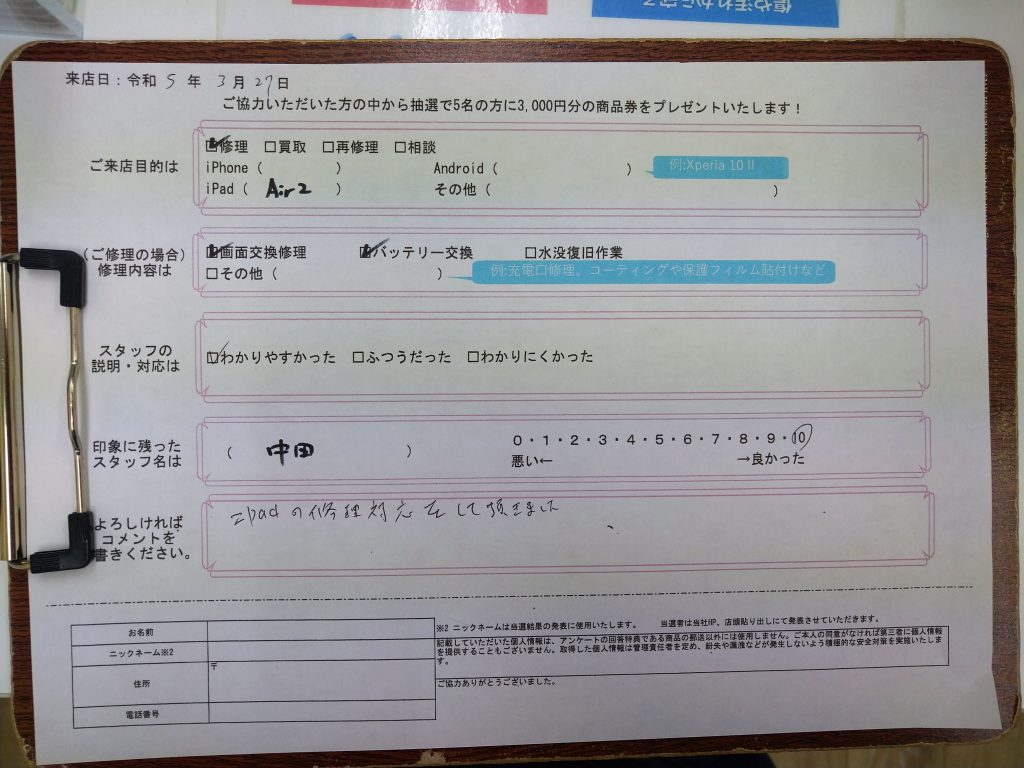 傷や汚れから守る
来店日:令和 5 年 3 月 27 日
ご協力いただいた方の中から抽選で5名の方に3,000円分の商品券をプレゼントいたします!
ご来店目的は
☑修理 □買取 □再修理 □相談
iPhone( ) Android( ) 例:Xperia 10 II
iPad( Air2 ) その他( )
(ご修理の場合)
修理内容は
☑画面交換修理 ☑バッテリー交換 □水没復旧作業
□その他( ) 例:充電口修理、コーティングや保護フィルム貼付けなど
スタッフの
説明・対応は
☑わかりやすかった □ふつうだった □わかりにくかった
印象に残った
スタッフ名は
( 中田 )
0・1・2・3・4・5・6・7・8・9・10
悪い← →良かった
よろしければ
コメントを
書きください。
iPadの修理対応をして頂きました
お名前
ニックネーム※2
住所
〒
電話番号
※2 ニックネームは当選結果の発表に使用いたします。 当選者は当社HP、店頭貼り出しにて発表させていただきます。
記載していただいた個人情報は、アンケートの回答特典である商品の郵送以外には使用しません。ご本人の同意がなければ第三者に個人情報
を提供することもございません。取得した個人情報は管理責任者を定め、紛失や漏洩などが発生しないよう積極的な安全対策を実施いたしま
す。
ご協力ありがとうございました。